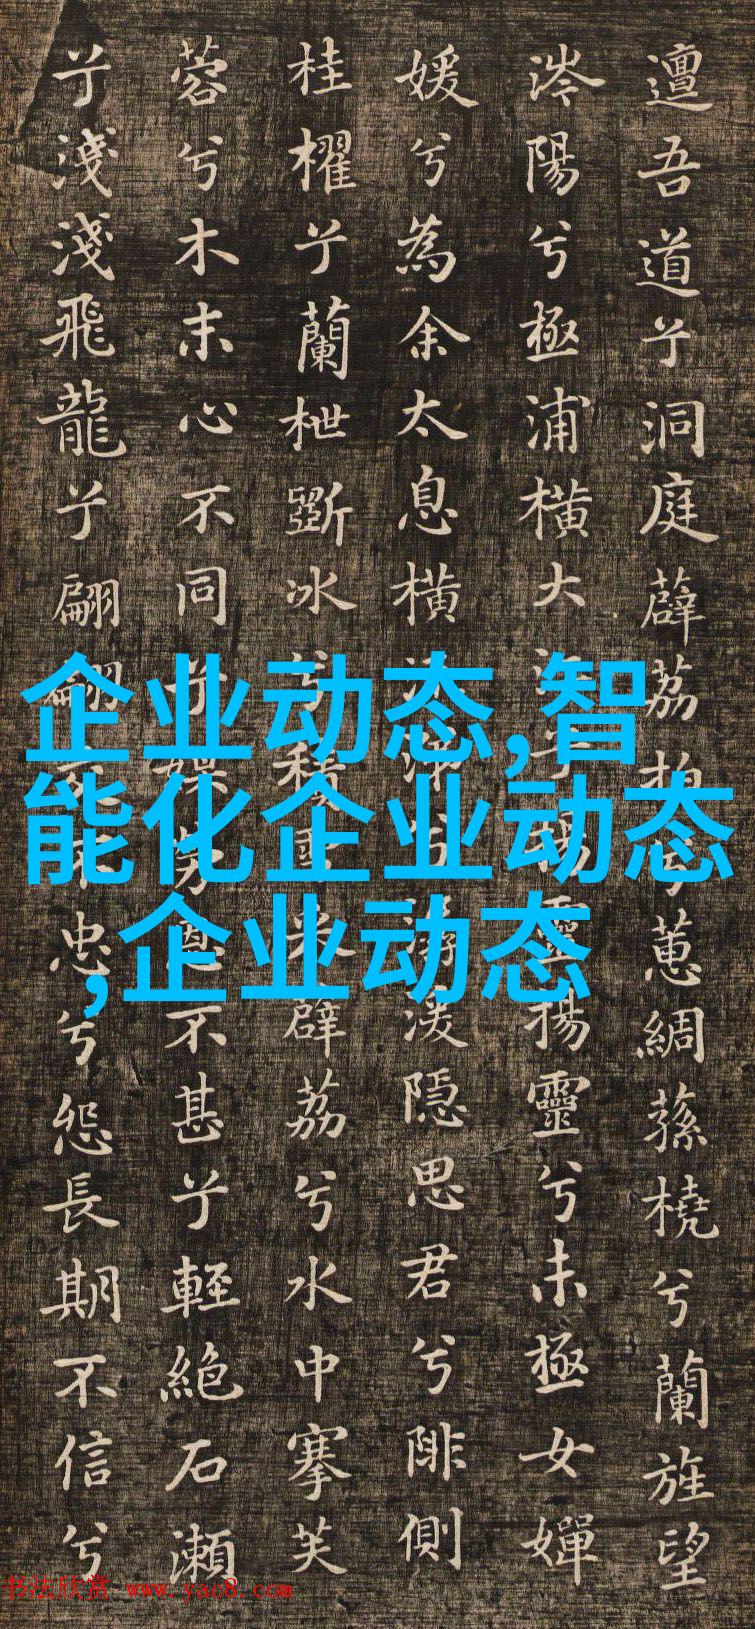 邅吾道兮洞庭薜荔拍兮蕙綢蓀橈兮蘭旌望
涔陽兮極浦橫大江兮揚靈揚靈兮未極女嬋
媛兮為余太息橫流涕兮潺湲隱思君兮陫側
桂櫂兮蘭枻斲冰兮積雪采薜荔兮水中搴芙
蓉兮木末心不同兮媒勞恩不甚兮輕絶石瀨
兮淺淺飛龍兮翩翩交不忠兮怨長期不信兮
企业动态,智
能化企业动态
,企业动态
书法欣赏 www.yac8.com